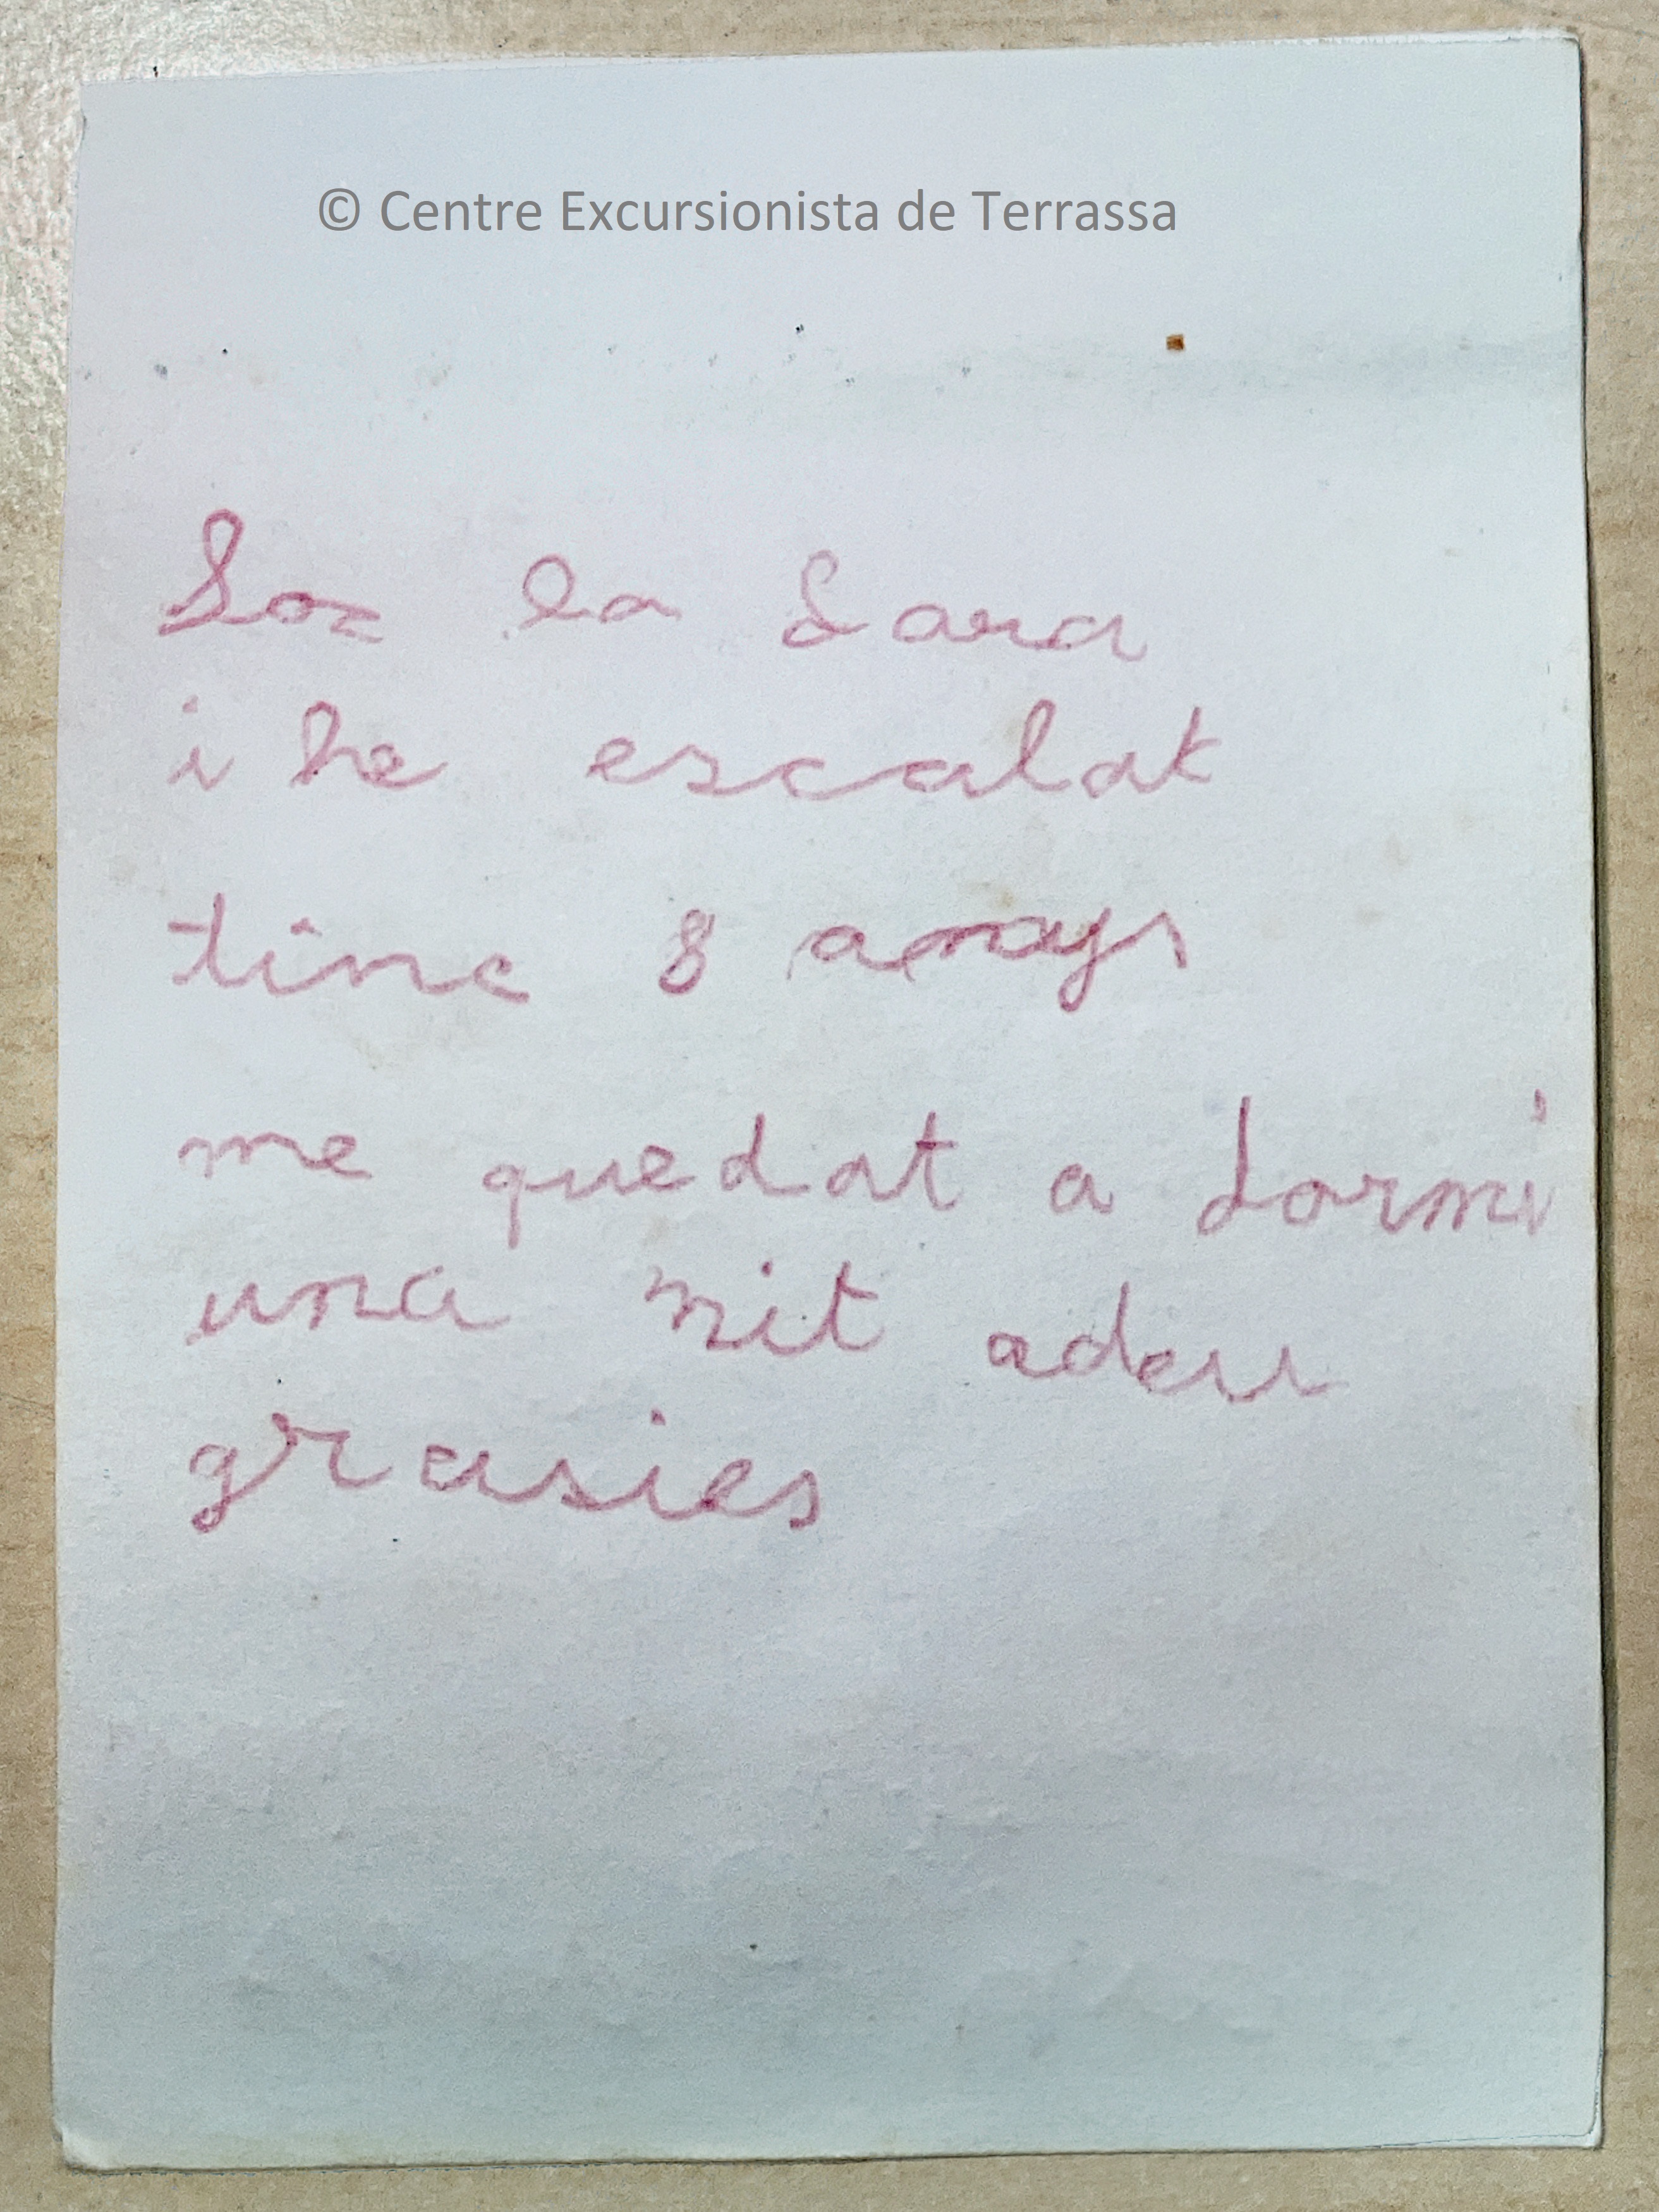 © Centre Excursionista de Terrassa
Soc la Sara
i he escalat
tinc 8 anays
me quedat a dormi
una nit adeu
grasies